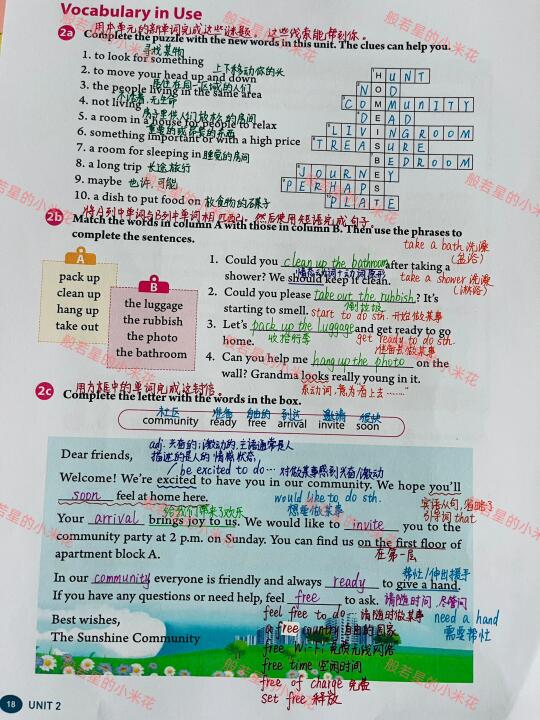 Vocabulary in Use
用本单元的新单词完成这些谜题。这些线索能帮到你。
2a Complete the puzzle with the new words in this unit. The clues can help you.
寻找某物
1. to look for something
上下移动你的头
2. to move your head up and down
居住在同一区域的人们
3. the people living in the same area
不活着,无生命
4. not living
房子里供人们放松的房间
5. a room in a house for people to relax
重要的或昂贵的东西
6. something important or with a high price
7. a room for sleeping in 睡觉的房间
8. a long trip 长途旅行
9. maybe 也许,可能
10. a dish to put food on 放食物的碟子
HUNT
NOD
COMMUNITY
DEAD
LIVINGROOM
TREASURE
BEDROOM
JOURNEY
PERHAPS
PLATE
将A列中单词与B列中单词相匹配,然后使用短语完成句子。
2b Match the words in column A with those in column B. Then use the phrases to
complete the sentences.
take a bath 洗澡
(盆浴)
A
pack up
clean up
hang up
take out
B
the luggage
the rubbish
the photo
the bathroom
1. Could you clean up the bathroom after taking a
情态动词+动词原形
shower? We should keep it clean.
take a shower 洗澡
(淋浴)
2. Could you please take out the rubbish? It's
倒垃圾
starting to smell. start to do sth. 开始做某事
3. Let's pack up the luggage and get ready to go
收拾行李
home.
get ready to do sth.
准备去做某事
4. Can you help me hang up the photo on the
wall? Grandma looks really young in it.
系动词,意为"看上去……"
用方框中的单词完成这封信。
2c Complete the letter with the words in the box.
社区 准备 自由的 到达 邀请 很快
community ready free arrival invite soon
Dear friends,
adj. 兴奋的;激动的,主语通常是人
描述的是人的情感状态
be excited to do… 对做某事感到兴奋/激动
Welcome! We're excited to have you in our community. We hope you'll
soon feel at home here.
would like to do sth.
想要做某事
宾语从句,省略了
引导词 that
给我们带来了欢乐
Your arrival brings joy to us. We would like to invite you to the
community party at 2 p.m. on Sunday. You can find us on the first floor of
在第一层
apartment block A.
帮忙/伸出援手
In our community everyone is friendly and always ready to give a hand.
If you have any questions or need help, feel free to ask. 请随时问,尽管问
feel free to do… 请随时做某事
need a hand
需要帮忙
Best wishes,
The Sunshine Community
a free country 自由的国家
free Wi-Fi 免费无线网络
free time 空闲时间
free of charge 免费
set free 释放
18 UNIT 2
般若星的小米花